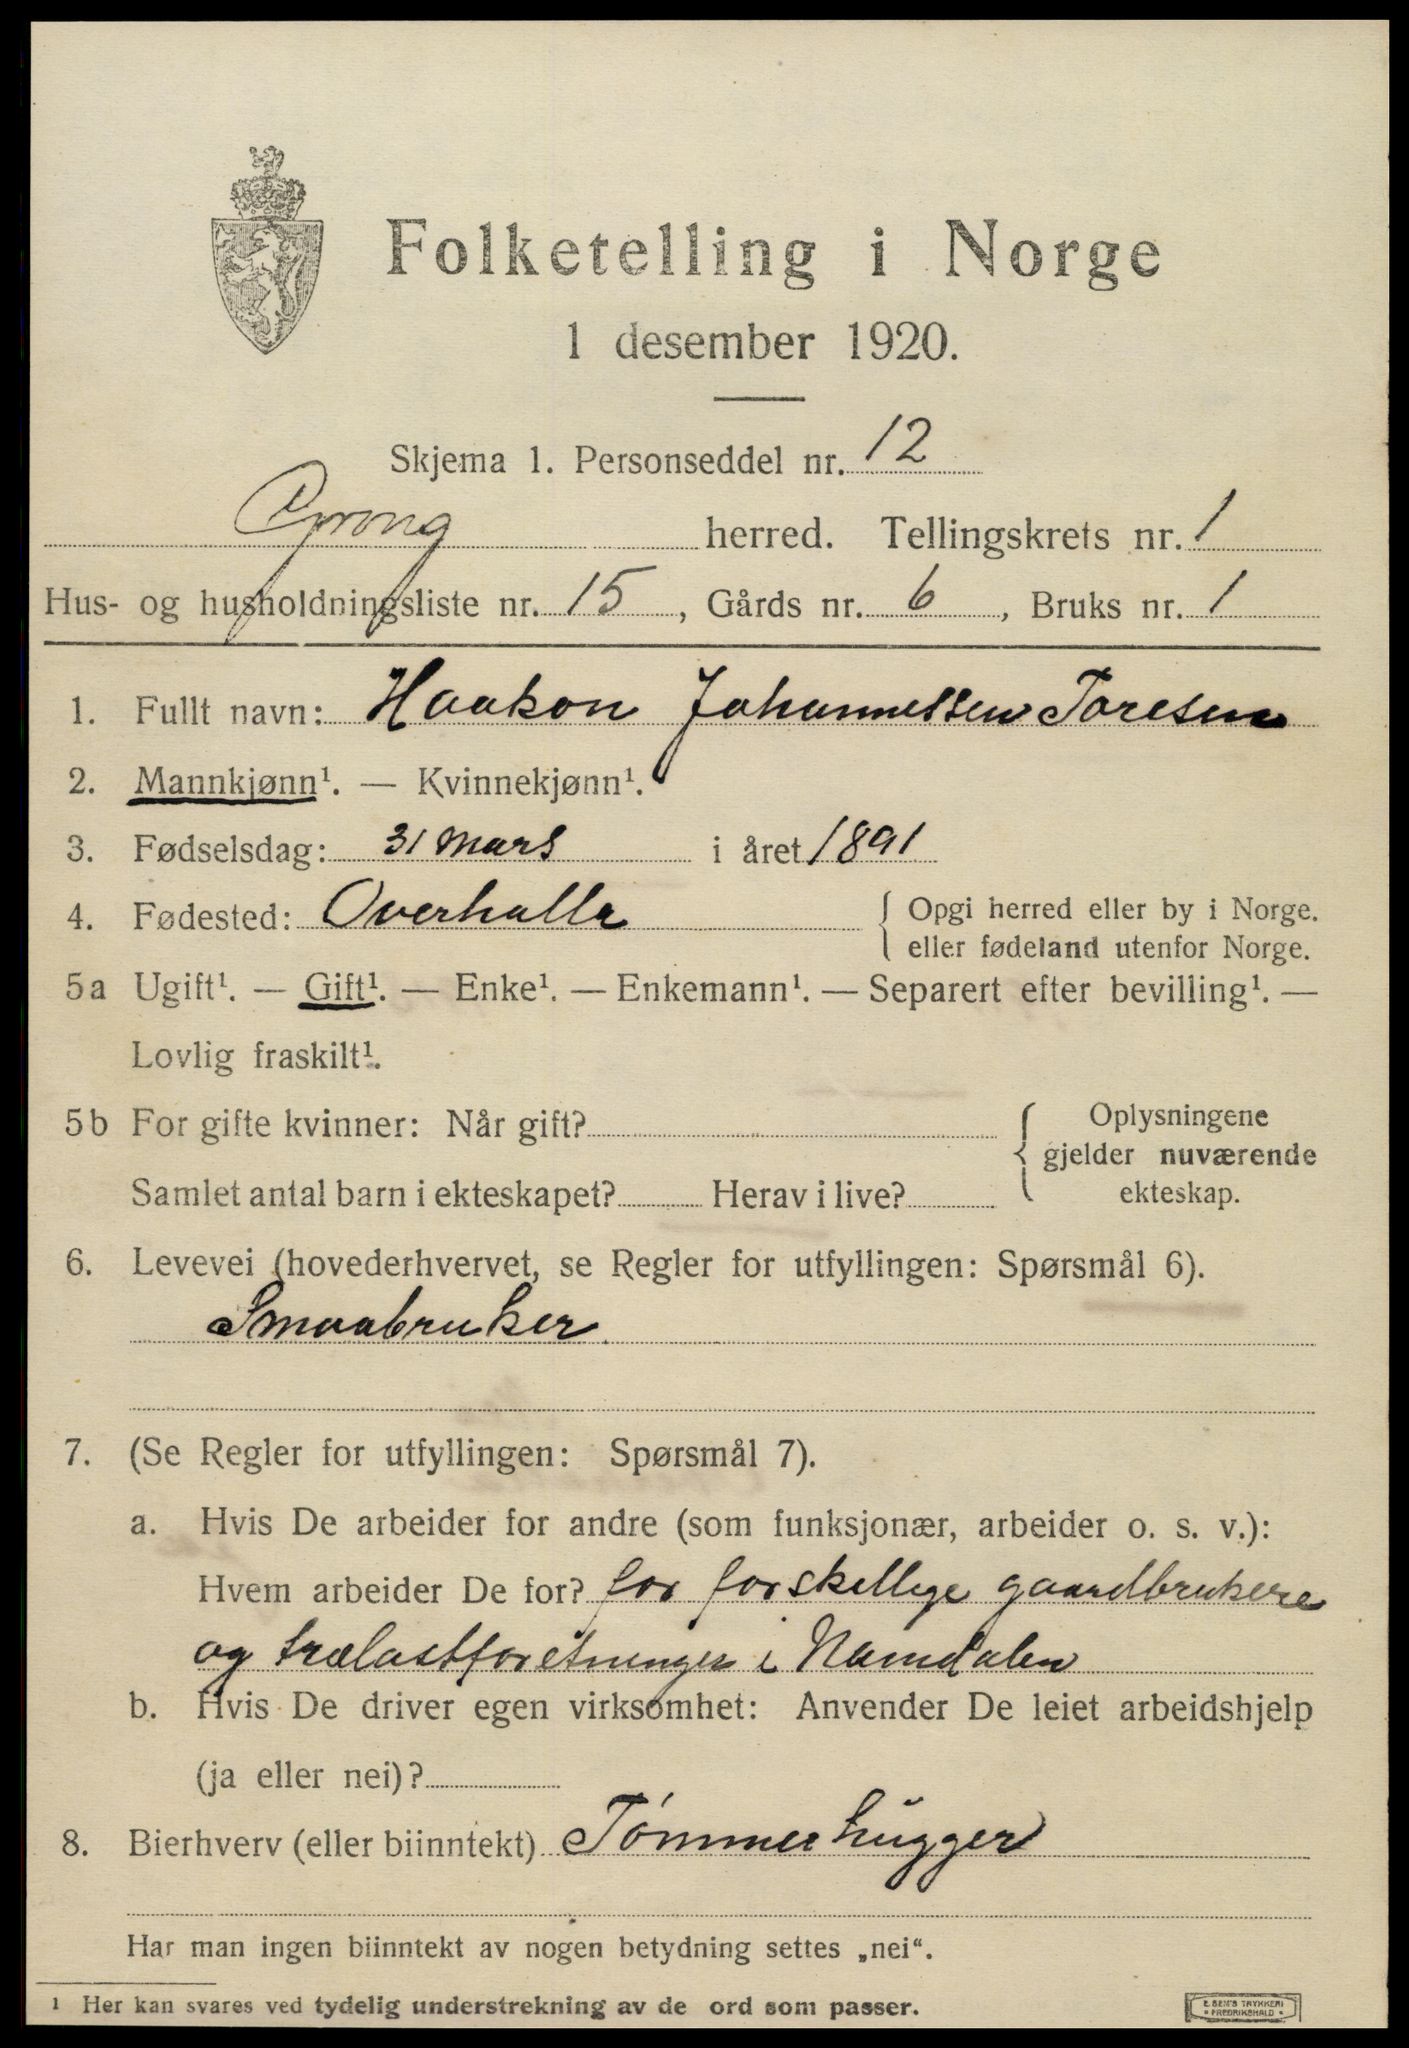 Folketelling i Norge
1 desember 1920.
Skjema 1. Personseddel nr. 12
Grong herred. Tellingskrets nr. 1
Hus- og husholdningsliste nr. 15, Gårds nr. 6, Bruks nr. 1
1. Fullt navn: Haakon Johannessen Toresen
2. Mannkjønn¹. — Kvinnekjønn¹.
3. Fødselsdag: 31 mars i året 1891
4. Fødested: Overhalla { Opgi herred eller by i Norge.
eller fødeland utenfor Norge.
5a Ugift¹. — Gift¹. — Enke¹. — Enkemann¹. — Separert efter bevilling¹. —
Lovlig fraskilt¹.
5b For gifte kvinner: Når gift? { Oplysningene
gjelder nuværende
Samlet antal barn i ekteskapet? Herav i live? ekteskap.
6. Levevei (hovederhvervet, se Regler for utfyllingen: Spørsmål 6).
Smaabruker
7. (Se Regler for utfyllingen: Spørsmål 7).
a. Hvis De arbeider for andre (som funksjonær, arbeider o. s. v.):
Hvem arbeider De for? for forskellige gaardbrukere
og trælastforetninger i Namdalen
b. Hvis De driver egen virksomhet: Anvender De leiet arbeidshjelp
(ja eller nei)?
8. Bierhverv (eller biinntekt) Tømmerhugger
Har man ingen biinntekt av nogen betydning settes „nei“.
1 Her kan svares ved tydelig understrekning av de ord som passer.
E. SEM'S TRYKKERI
FREDRIKSHALD